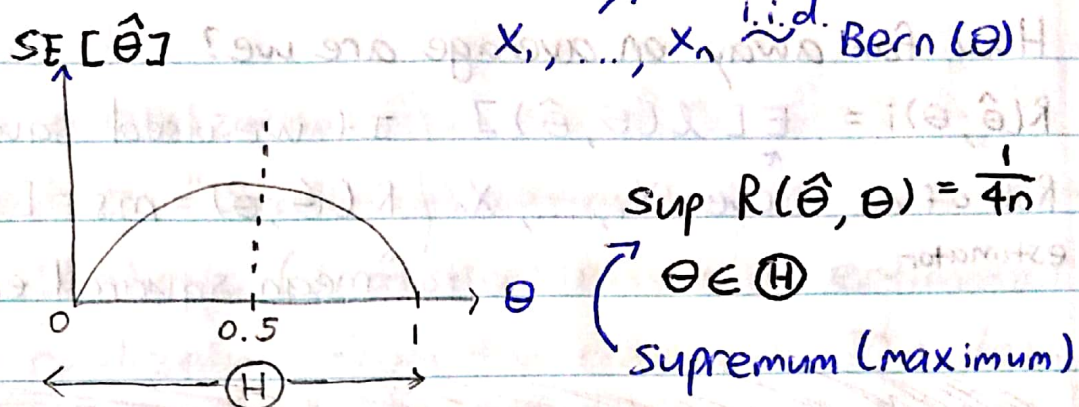 SE[θ̂]
X₁, ..., Xₙ i.i.d. ~ Bern(θ)
sup R(θ̂, θ) = 1/4n
θ ∈ Ⓗ
supremum (maximum)
θ
0 0.5 1
Ⓗ